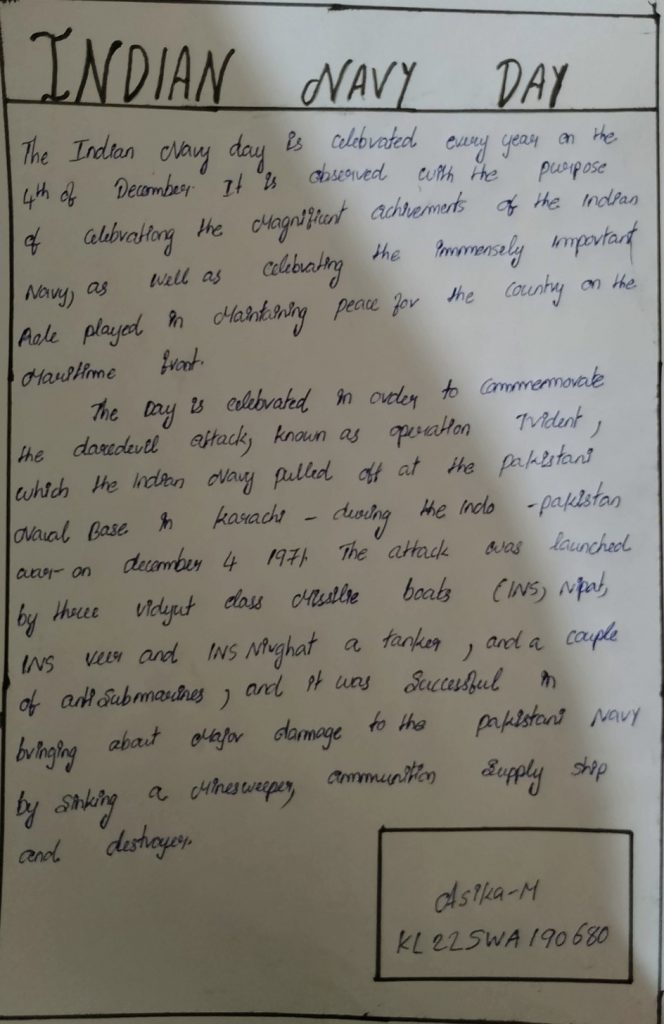 INDIAN NAVY DAY
The Indian Navy day is celebrated every year on the
4th of December. It is observed with the purpose
of celebrationg the Magnificent achivements of the Indian
Navy, as well as celebrating the immensely important
Role played in Maintaining peace for the country on the
Maritime front.
The Day is celebrated in order to Commemorate
the daredevil attack, known as operation Trident,
which the Indian Navy pulled off at the pakistani
Naval Base in karachi - during the Indo - pakistan
war- on december 4 1971. The attack was launched
by three vidyut class Missilie boats (INS, Nipat,
INS veer and INS Nirghat a tanker, and a couple
of antiSubmarines, and it was Successful in
bringing about Major damage to the pakistani Navy
by sinking a Minesweeper, ammunition Supply ship
and destroyer.
Asika-M
KL22SWA190680